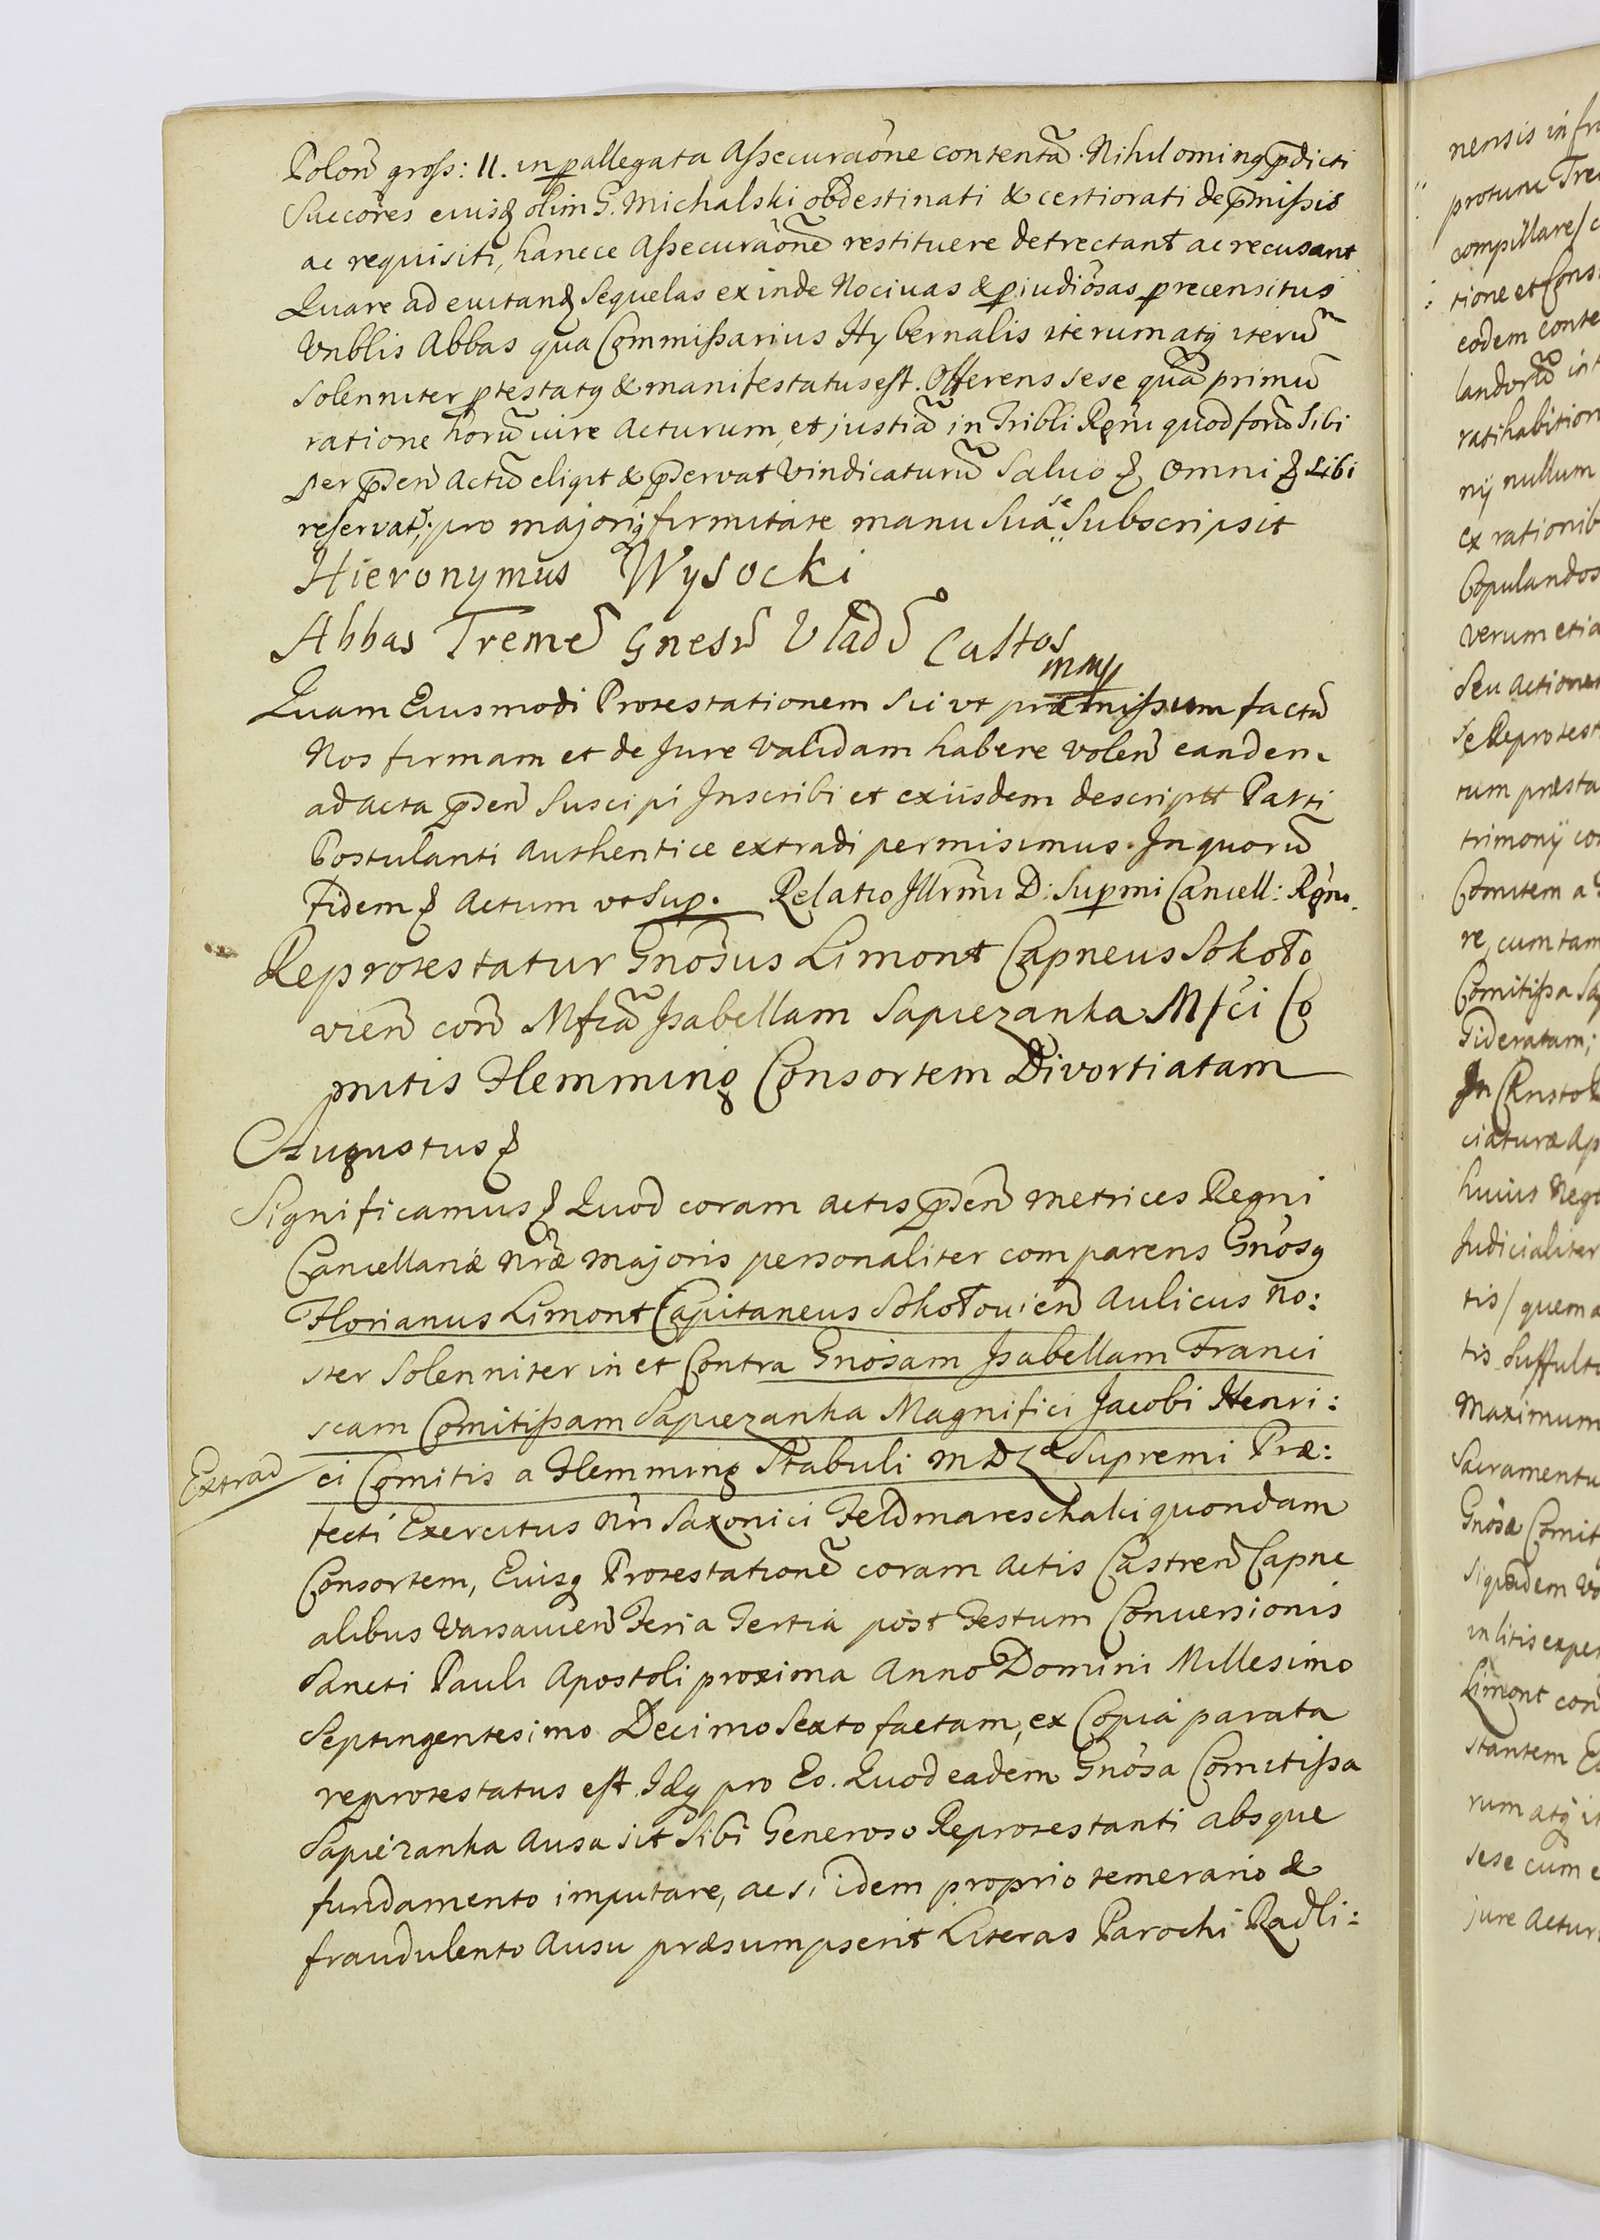 Polon̄ gross: 11. in p̱allegata Assecuraōne contentā. Nihilominꝗ p̄dicti
Succōres eiusꝗ olim G. Michalski obdestinati & certiorati de p̄missis
ac requisiti, hancce Assecuraōnē restituere detrectant ac recusant
Quare ad euitanꝗ sequelas exinde Nociuas & p̱iudiōsas p̱recensitus
Vnblis Abbas qua Commissarius Hybernalis iterum atꝗ iterū
solenniter p̱testatꝗ & manifestatus est. Offerens sese quā primū
ratione horū iure Acturum, et justiā in Tribli Rgni quod forū Sibi
per p̄sen̄ Actū eligit & p̄servat Vindicaturū Saluo ꝗ Omni ꝗ Sibi
reservatꝗ. pro majoriꝗ firmitate manu Sua se Subscripsit
Hieronymus Wysocki
Abbas Tremē Gnesn̄ Vladō Custos
mmp
Quam Eiusmodi Protestationem Sic vt præmissum factā
Nos firmam et de Jure Validam habere volen̄ eandem
ad acta p̄sen̄ Suscipi Inscribi et exiisdem descriptt Parti
Postulanti Authentice extradi permisimus. In quorū
Fidem ꝗ Actum vt Sup. Relatio Jllrmi D: Supmi Cancell: Rgni.
Reprotestatur Gnōsus Limont Capneus Sokoło
vien̄ con̄ Mfcā Isabellam Sapiezanka Mfci Co
mitis Flemming Consortem Divortiatam
Augustus ꝗ
Significamus ꝗ Quod coram actis p̄sen̄ metrices Regni
Cancellariæ nræ majoris personaliter comparens Gnōsꝗ
Florianus Limont Capitaneus Sokołouien̄ Aulicus No:
ster Solenniter in et Contra Gnōsam Isabellam Franci
scam Comitissam Sapiezanka Magnifici Jacobi Henri:
Extrad
ci Comitis a Flemming Stabuli M D L Supremi Præ:
fecti Exercitus Nri Saxonici Feldmareschalci quondam
Consortem, Eiusꝗ Protestationē coram Actis Castren̄ Capne
alibus Varsauien̄ Feria Tertia post Festum Conuersionis
Sancti Pauli Apostoli proxima Anno Domini Millesimo
Septingentesimo Decimo Sexto factam, ex Copia parata
reprotestatus est. Idꝗ pro Eo. Quod eadem Gnōsa Comitissa
Sapiezanka Ausa sit Sibi Generoso Reprotestanti absque
fundamento imputare, ac si idem proprio temerario &
fraudulento Ausu præsumpserit Literas Parochi Radli:
nensis infra
compillare/
eodem conte
nij nullum
ex rationib
Copulandos
verum etia
seu Actionem
se Reprotest
tum præsta
trimonij con
Comitem a
re, cum tam
Comitissa Sa
sideratam;
huius Neg
Judicialiter
tis / quem a
tis Suffult
Maximum
Sacramentu
Gnōsa Comit
in litis expe
Limont con
stantem E
rum atꝗ it
sese cum e
jure Actur